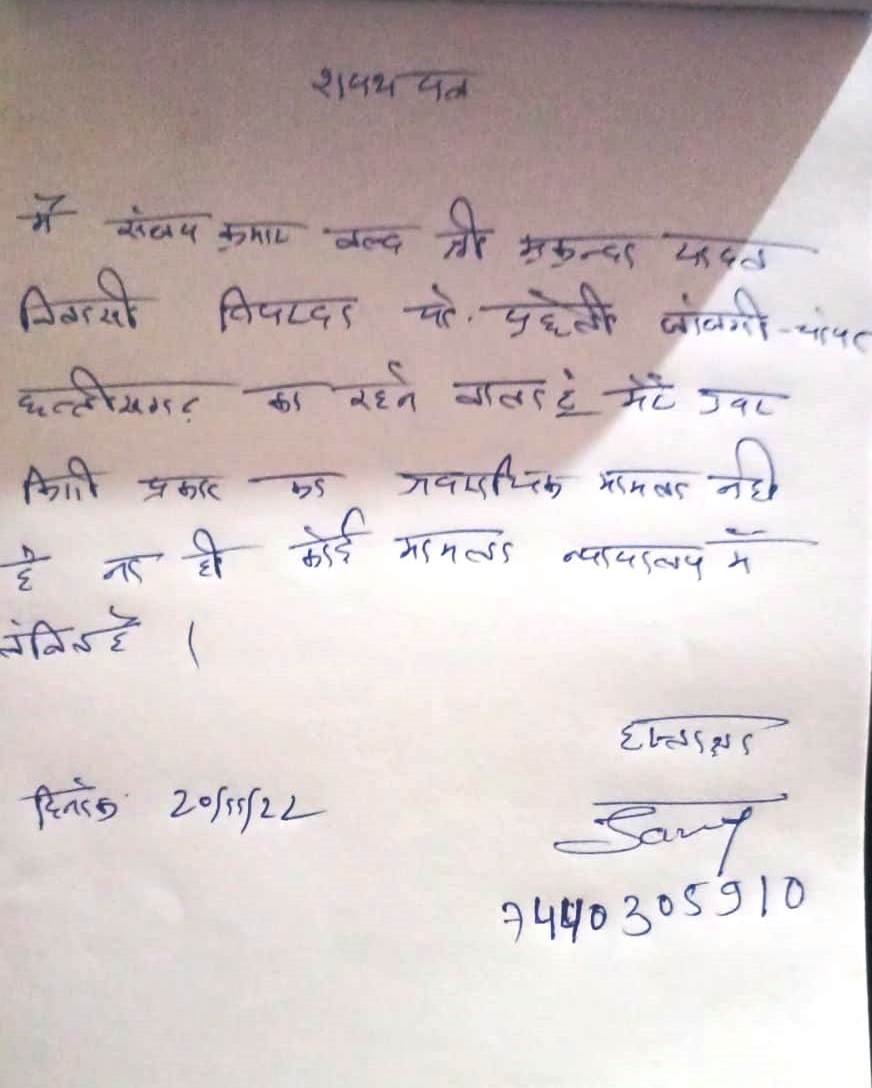 शपथ पत्र
मैं संजय कुमार वल्द श्री मुकुन्दा यादव
निवासी पो. जांजगी-चांपा
छत्तीसगढ़ का रहने वाला हूं मेरे उपर
किसी प्रकार का अपराधिक मामला नही
है ना ही कोई मामला न्यायालय में
लंबित है ।
हस्ताक्षर
दिनांक 20/11/22
7440305910